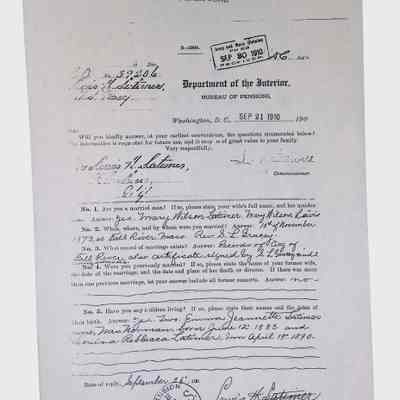 3-1081.
Army and Navy Division
SEP 30 1910
RECEIVED
39206
Lewis H. Latimer,
U.S. Navy
Department of the Interior,
BUREAU OF PENSIONS,
Washington, D. C., SEP 21 1910 190
Will you kindly answer, at your earliest convenience, the questions enumerated below?
information is requested for future use, and it may be of great value to your family.
Very respectfully,
Lewis H. Latimer, Commissioner.
No. 1. Are you a married man? If so, please state your wife's full name, and her maiden
name. Answer: Yes. Mary Wilson Latimer Mary Wilson Lewis
No. 2. When, where, and by whom were you married? Answer: of November
1873, at Fall River Mass Rev
No. 3. What record of marriage exists? Answer: Records of City of
Fall River also certificate signed by
No. 4. Were you previously married? If so, please state the name of your former wife,
the date of the marriage, and the date and place of her death or divorce. If there was more
than one previous marriage, let your answer include all former names. Answer: no
No. 5. Have you any children living? If so, please state their names and the dates of
their birth. Answer: Yes. Two. Emma Jeannette Latimer
now, Mrs Norman born June 12 1883 and
Louise Rebecca Latimer born April 18th 1890.
Date of reply, September 26th 190
Lewis H. Latimer